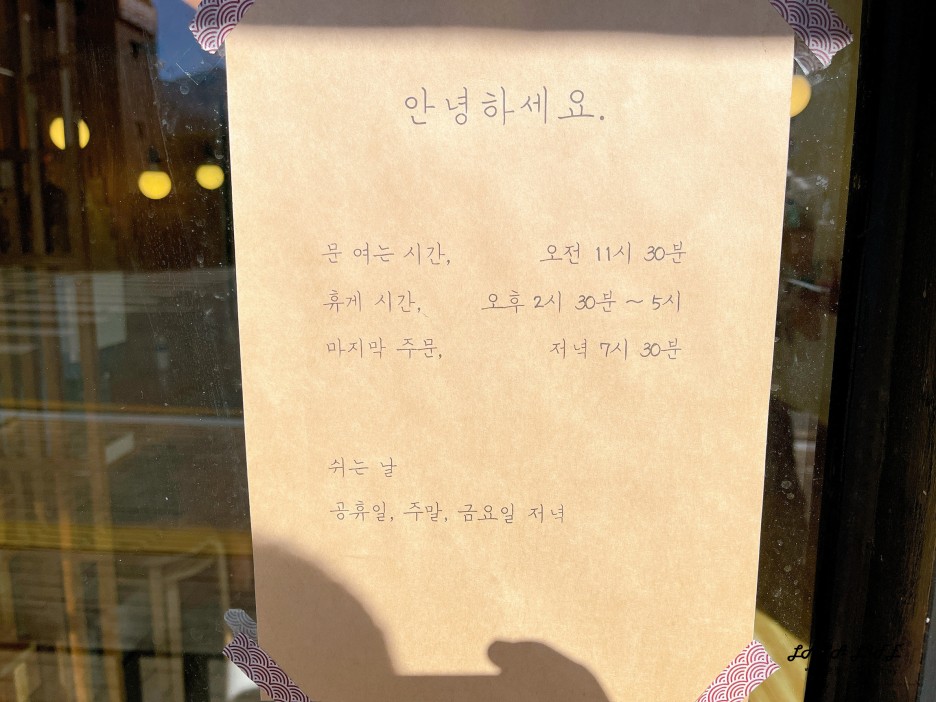 안녕하세요.
문 여는 시간, 오전 11시 30분
휴게 시간, 오후 2시 30분 ~ 5시
마지막 주문, 저녁 7시 30분
쉬는 날
공휴일, 주말, 금요일 저녁